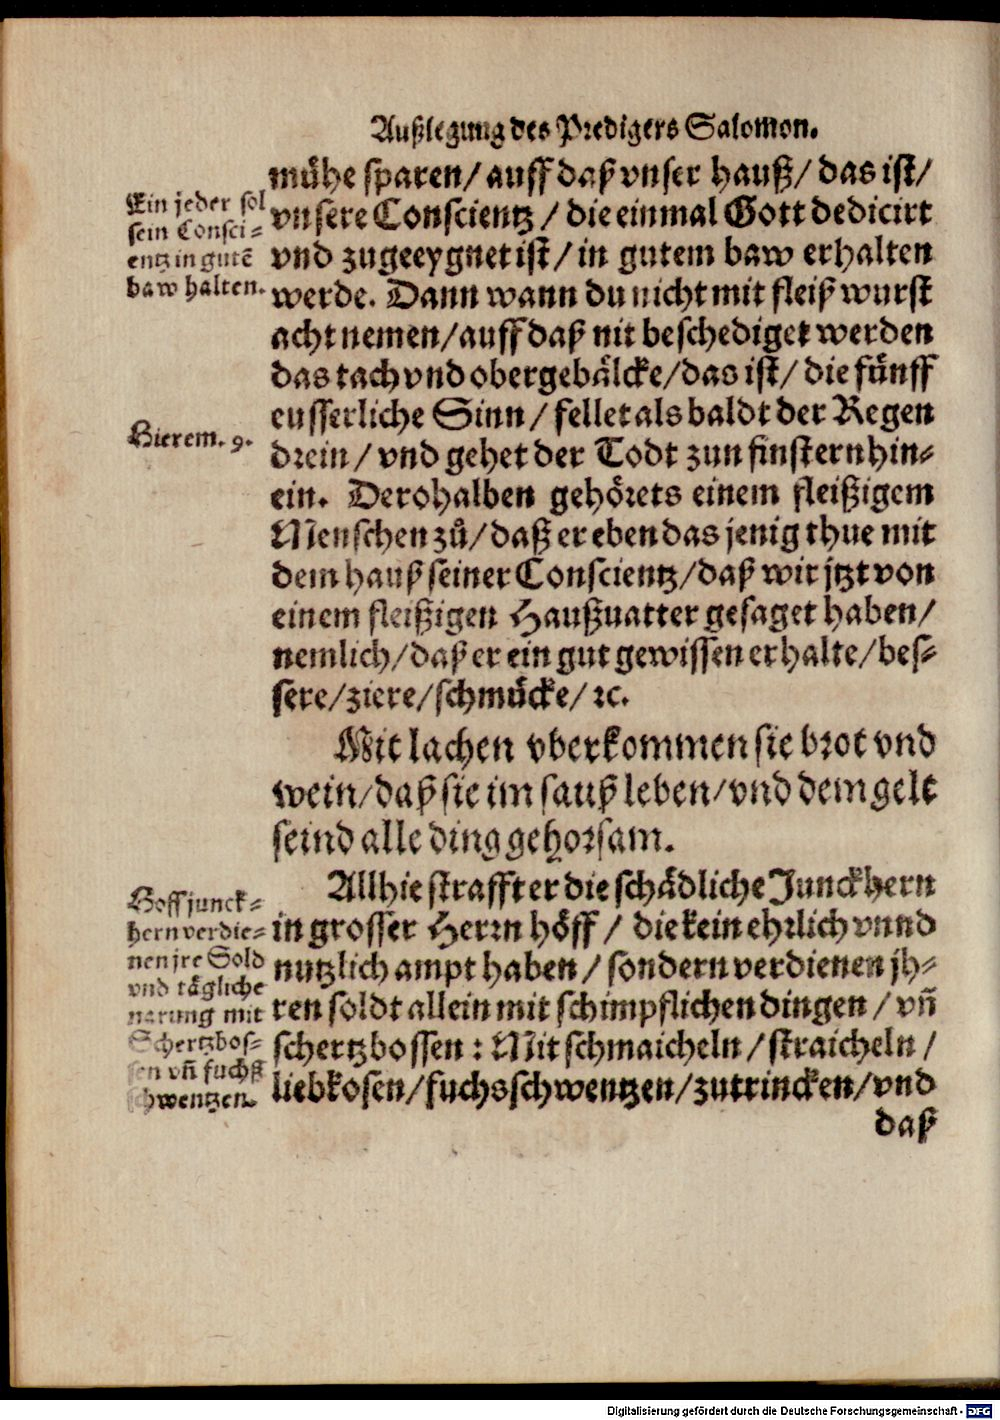 Außlegung des Predigers Salomon.
mühe sparen/ auff daß vnser hauß/ das ist/
vnsere Conscientz / die einmal Gott dedicirt
vnd zugeeygnet ist/ in gutem baw erhalten
werde. Dann wann du nicht mit fleiß wurst
acht nemen/ auff daß nit beschediget werden
das tach vnd obergebälcke/ das ist/ die fünff
eusserliche Sinn / fellet als baldt der Regen
drein / vnd gehet der Todt zun finstern hin-
ein. Derohalben gehörets einem fleißigem
Menschen zů/ daß er eben das jenig thue mit
dem hauß seiner Conscientz/ daß wir jtzt von
einem fleißigen Haußuatter gesaget haben/
nemlich/ daß er ein gut gewissen erhalte/ bes-
sere/ ziere/ schmücke/ ꝛc.
Mit lachen vberkommen sie brot vnd
wein/ daß sie im sauß leben/ vnd dem gelt
seind alle ding gehorsam.
Allhie strafft er die schädliche Junckhern
in grosser Herrn höff / die kein ehrlich vnnd
nutzlich ampt haben / sondern verdienen jh-
ren soldt allein mit schimpflichen dingen / vn̄
schertzbossen : Mit schmaicheln / straicheln /
liebkosen/ fuchsschwentzen/ zutrincken/ vnd
daß
Ein jeder sol
sein Consci-
entz in gutē
baw halten.
Hierem. 9.
Hoffjunck-
hern verdie-
nen jre Sold
vnd tägliche
narung mit
Schertzbos-
sen vn̄ fuchß
schwentzen.
Digitalisierung gefördert durch die Deutsche Forschungsgemeinschaft - DFG